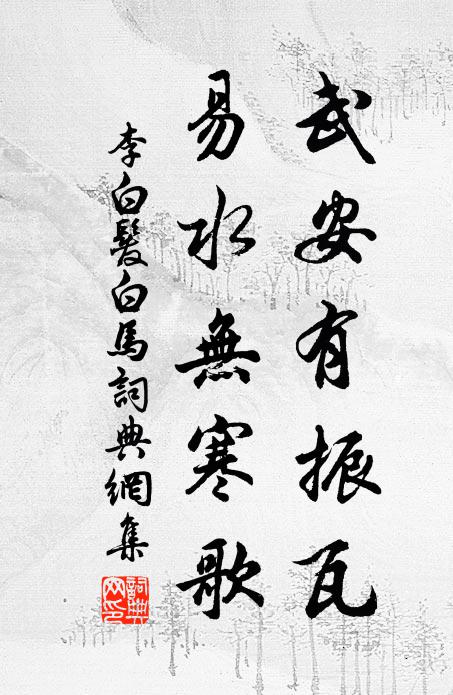 武安有振瓦
易水無寒歌
李白髮白馬詞典網集
詞典
網印